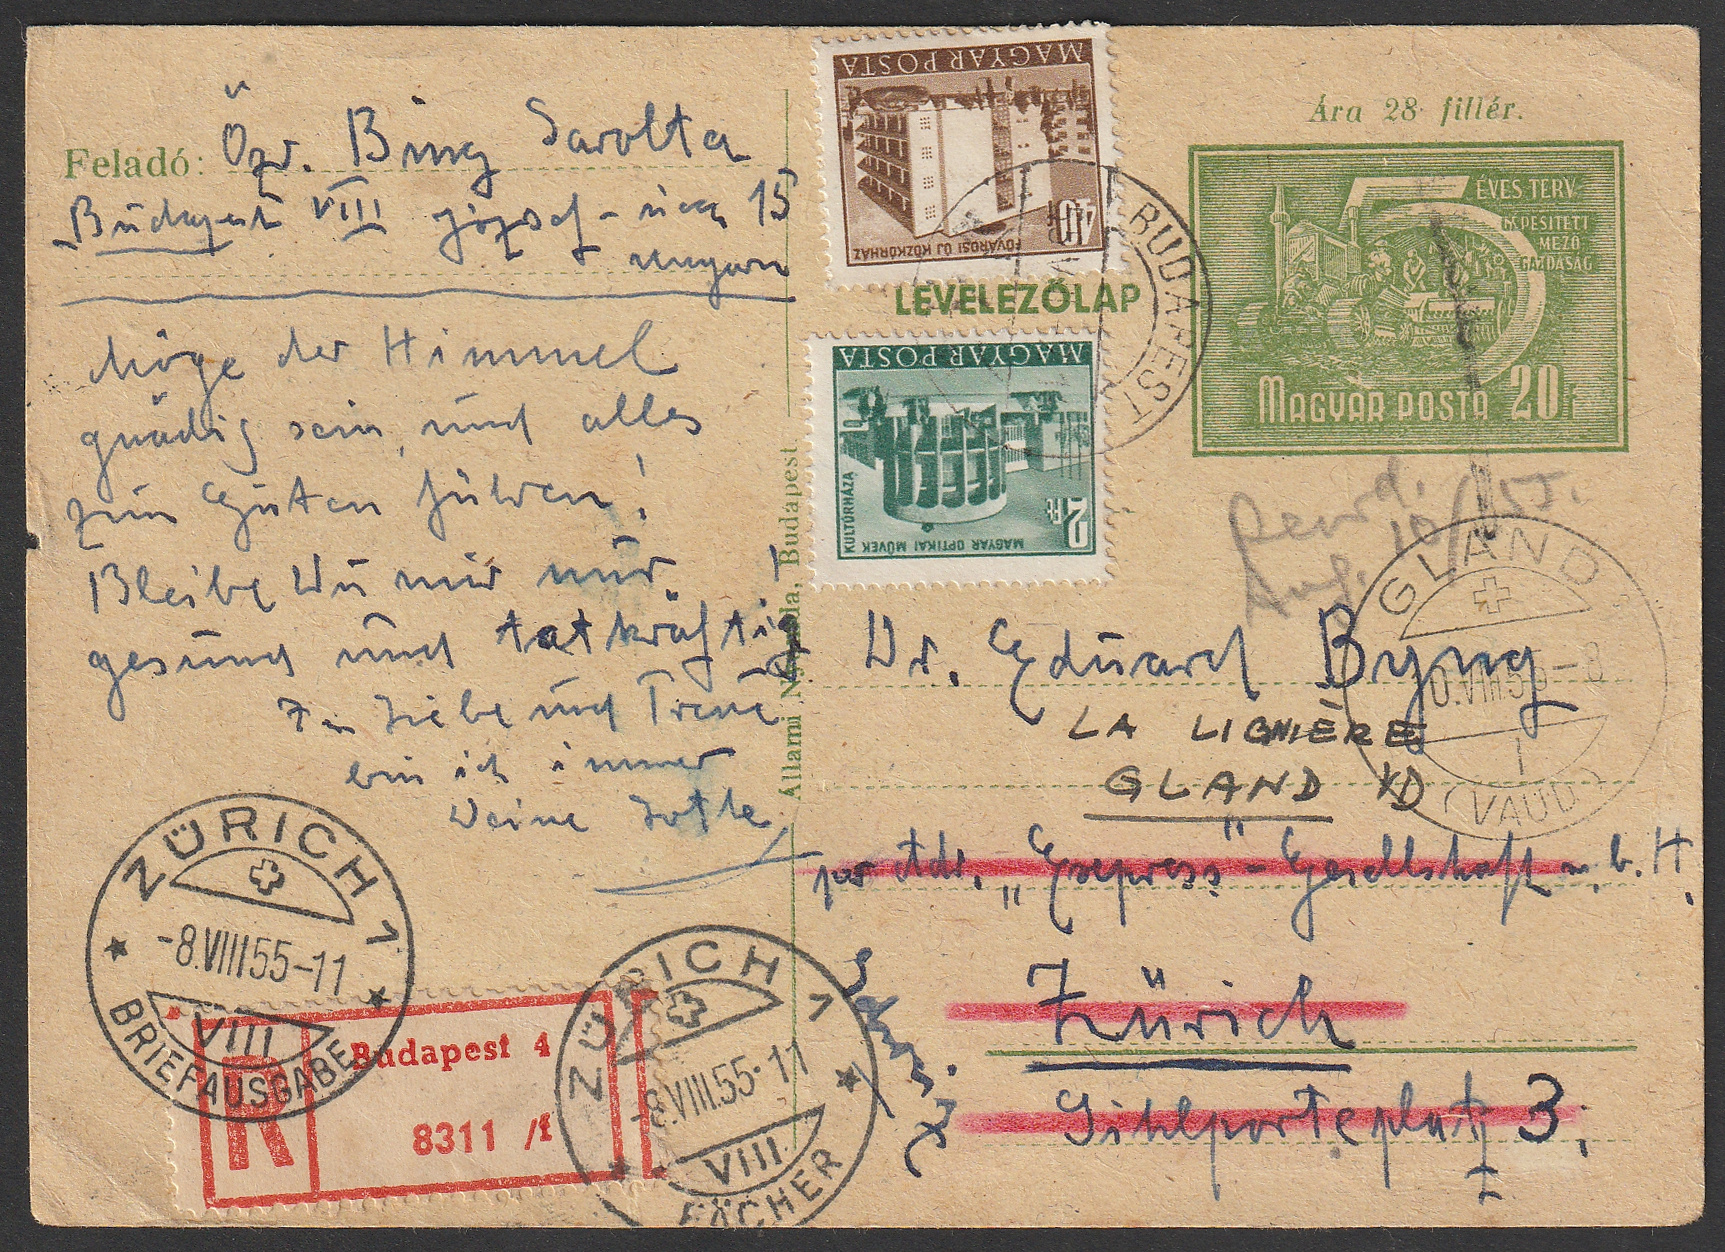 Feladó: Özv. Bing Sarolta
Budapest VIII József-ucca 15
Ungarn
Möge der Himmel
gnädig sein, und alles
zum Guten führen!
Bleibe Du mir nur
gesund und tatkräftig!
In Liebe und Treue
bin ich immer
Deine Lotte
Állami Ny da, Budapest
MAGYAR POSTA
40
FŐVÁROSI ÚJ KÖZKÓRHÁZ
LEVELEZŐLAP
MAGYAR POSTA
2 Ft
MAGYAR OPTIKAI MŰVEK
KULTÚRHÁZA
BUDAPEST
Ára 28 fillér.
5 ÉVES TERV
GÉPESÍTETT
MEZŐ
GAZDASÁG
MAGYAR POSTA 20 F
Recvd.
Aug. 10/55.
GLAND
0.VIII.55-8
1
(VAUD)
Dr. Eduard Byng
LA LIGNIÈRE
GLAND VD
per Adr. „Express"-Gesellschaft m. b. H.
Zürich
Sihlporteplatz 3.
Schweiz
ZÜRICH 1
-8.VIII55-11
VIII
BRIEFAUSGABE
ZÜRICH 1
-8.VIII.55-11
VIII
FÄCHER
R
Budapest 4
8311 /f